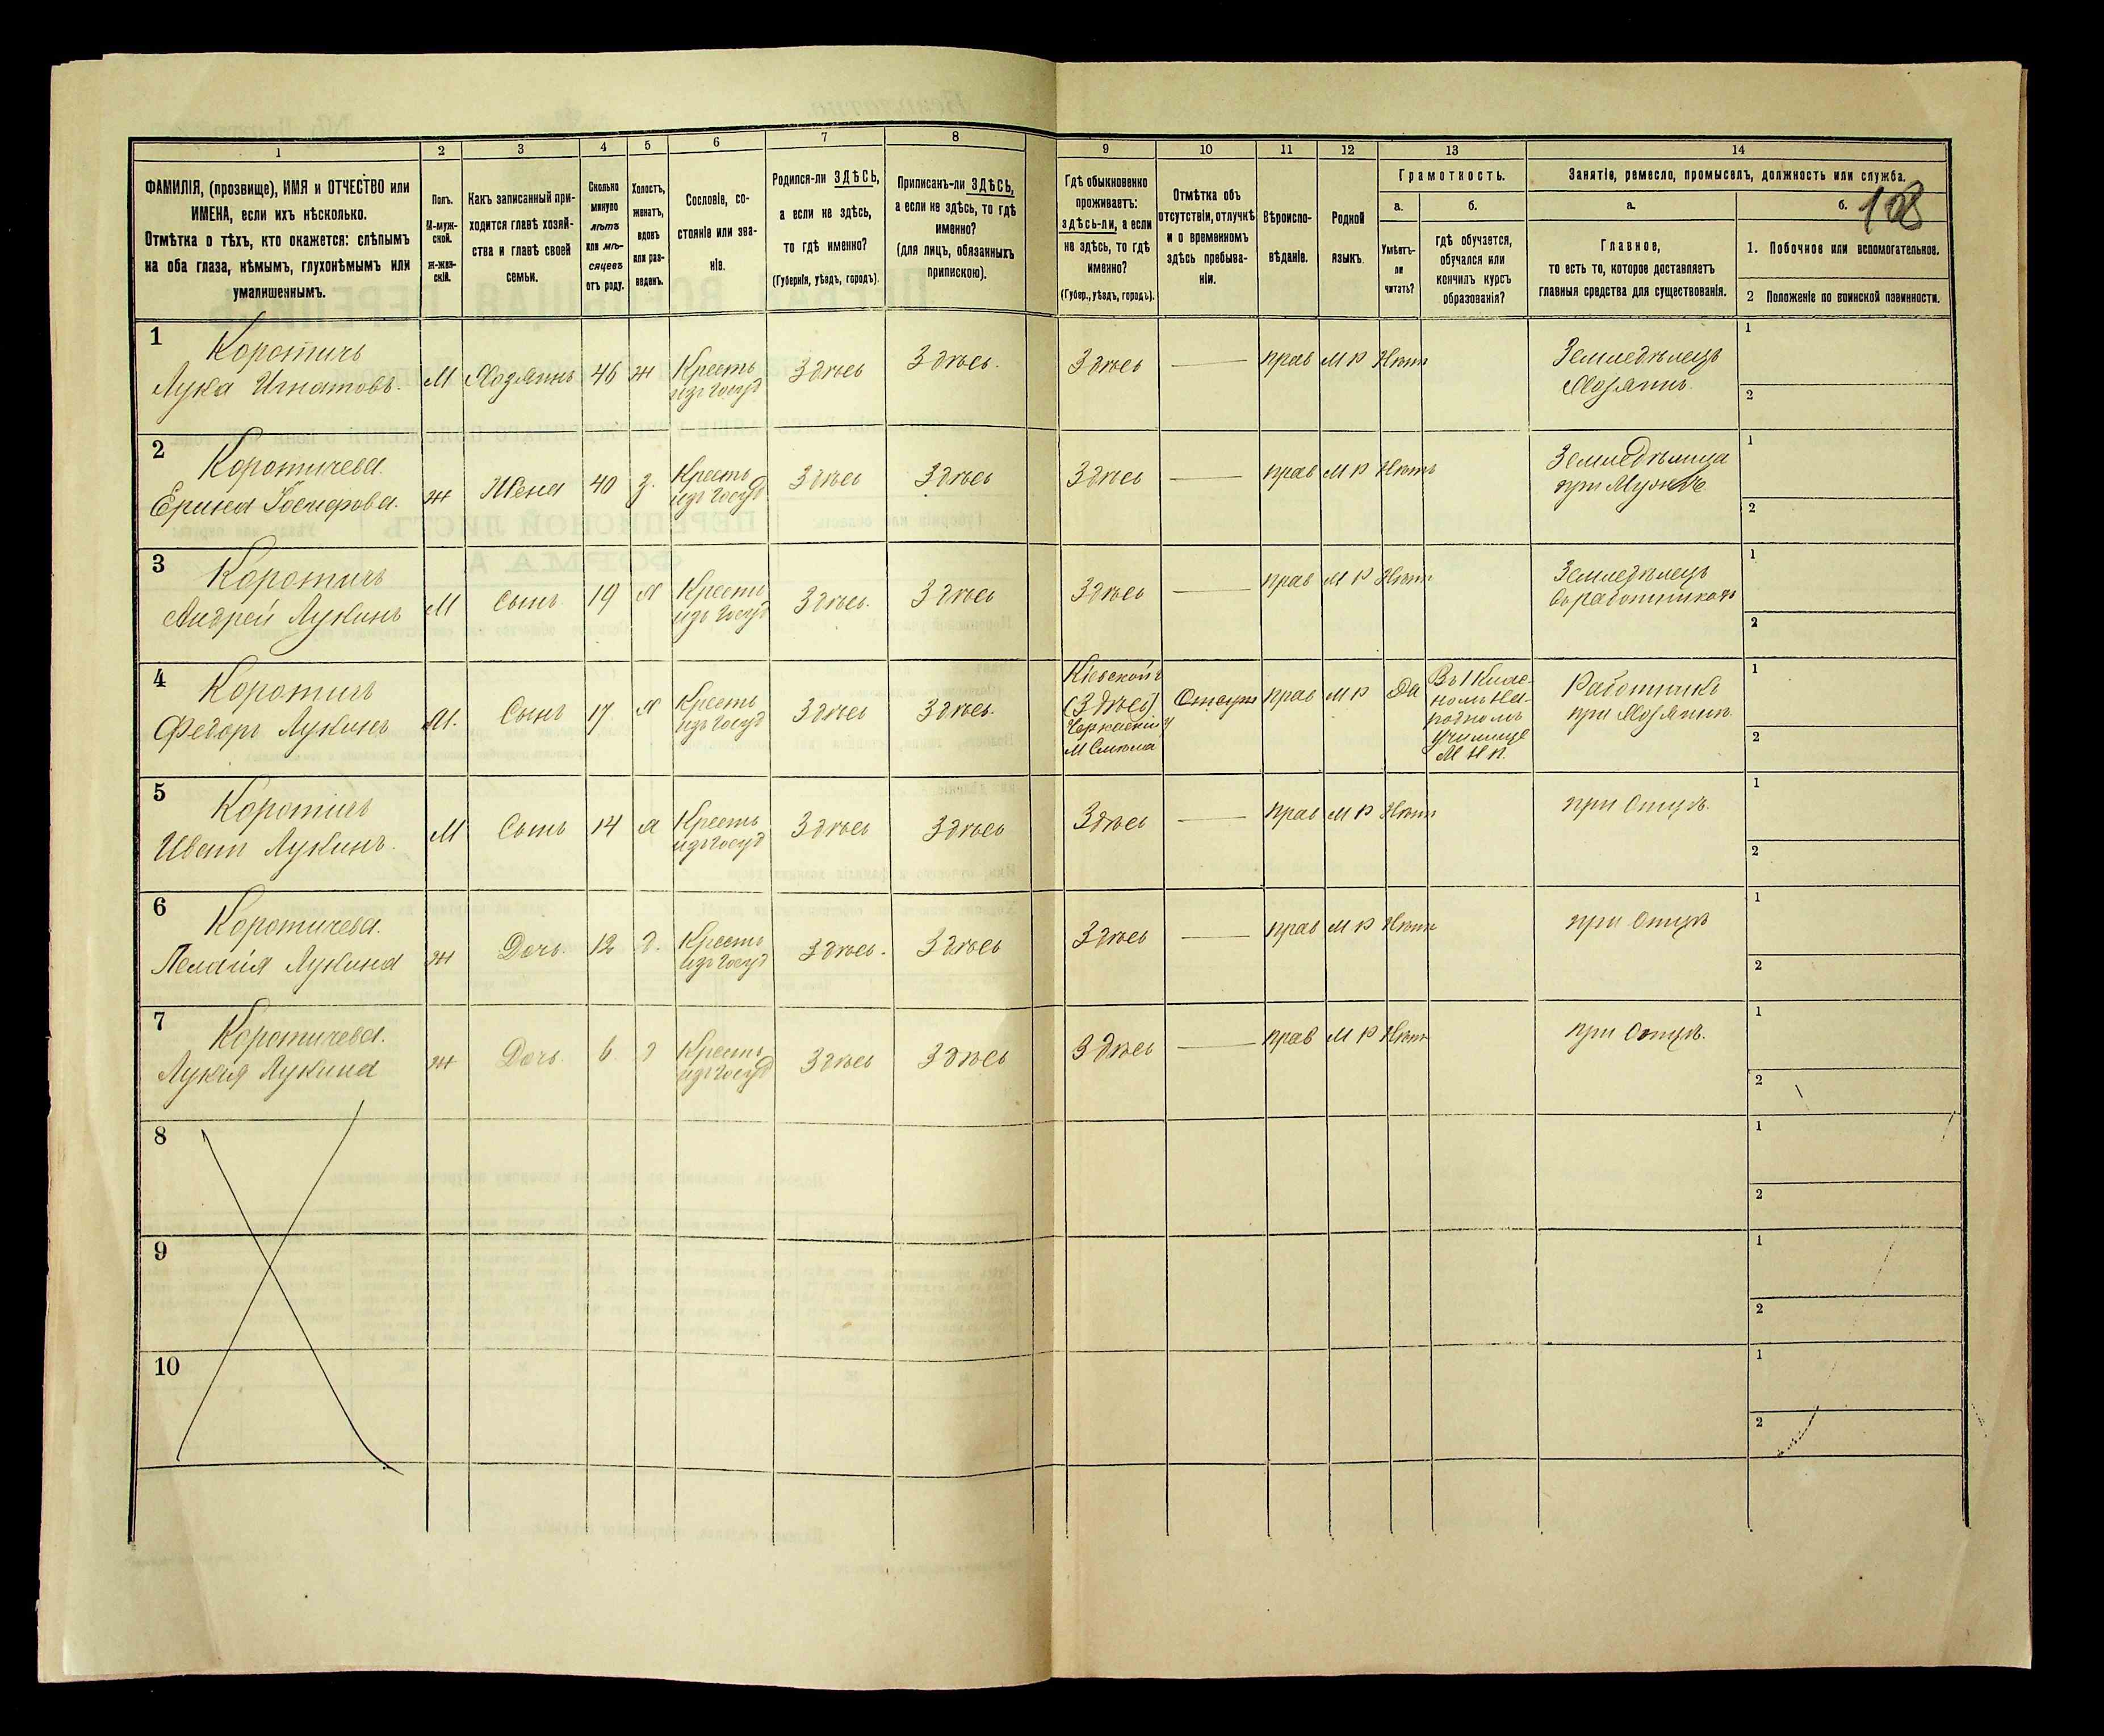 1 2 3 4 5 6 7 8 9 10 11 12 13 14
ФАМИЛІЯ, (прозвище), ИМЯ и ОТЧЕСТВО или
ИМЕНА, если ихъ нѣсколько.
Отмѣтка о тѣхъ, кто окажется: слѣпымъ
на оба глаза, нѣмымъ, глухонѣмымъ или
умалишеннымъ.
Полъ.
М-муж-
ской.
Ж-жен-
скій.
Какъ записанный при-
ходится главѣ хозяй-
ства и главѣ своей
семьи.
Сколько
минуло
лѣтъ
или мѣ-
сяцевъ
отъ роду.
Холостъ,
женатъ,
вдовъ
или раз-
веденъ.
Сословіе, со-
стояніе или зва-
ніе.
Родился-ли ЗДѢСЬ,
а если не здѣсь,
то гдѣ именно?
(Губернія, уѣздъ, городъ).
Приписанъ-ли ЗДѢСЬ,
а если не здѣсь, то гдѣ
именно?
(для лицъ, обязанныхъ
припискою).
Гдѣ обыкновенно
проживаетъ:
здѣсь-ли, а если
не здѣсь, то гдѣ
именно?
(Губер., уѣздъ, городъ).
Отмѣтка объ
отсутствіи, отлучкѣ
и о временномъ
здѣсь пребыва-
ніи.
Вѣроиспо-
вѣданіе.
Родной
языкъ.
Грамотность.
а.
Умѣетъ-
ли
читать?
б.
гдѣ обучается,
обучался или
кончилъ курсъ
образованія?
Занятіе, ремесло, промыселъ, должность или служба.
а.
Главное,
то есть то, которое доставляетъ
главныя средства для существованія.
б.
108
1. Побочное или вспомогательное.
2 Положеніе по воинской повинности.
1
Коротичъ
Лука Игнатовъ.
М
Хозяинъ
46
ж
Крестъ
изъ госуд
Здѣсь
Здѣсь.
Здѣсь
—
прав
М Р
Нѣтъ
Земледѣлецъ
Хозяинъ.
1
2
2
Коротичева.
Ерина Іосифова.
ж
Жена
40
з.
Крестъ
изъ госуд
Здѣсь
Здѣсь
Здѣсь
—
прав
М Р
Нѣтъ
Земледѣлица
при Мужѣ
1
2
3
Коротичъ
Андрей Лукинъ
М
Сынъ.
19
Х
Крестъ
изъ госуд
Здѣсь.
Здѣсь
Здѣсь
—
прав
М Р
Нѣтъ
Земледѣлецъ
1
2
4
Коротичъ
Федоръ Лукинъ
М.
Сынъ
17
Х
Крестъ
изъ госуд
Здѣсь
Здѣсь.
Кіевской г
(Здѣсь)
Черкаскій у
М Смѣла
Отсут
прав
М Р
Да
Въ 1 Клас-
номъ На-
родномъ
училище
М Н П.
Работникъ
при Хозяинѣ.
1
2
5
Коротичъ
Иванъ Лукинъ.
М
Сынъ
14
Х
Крестъ
изъ госуд
Здѣсь
Здѣсь
Здѣсь
—
прав
М Р
Нѣтъ
при Отцѣ.
1
2
6
Коротичева.
Пелагія Лукина
ж
Дочь.
12
д.
Крестъ
изъ госуд
Здѣсь.
Здѣсь
Здѣсь
—
прав
М Р
Нѣтъ
при Отцѣ
1
2
7
Коротичева.
Лукія Лукина
ж
Дочь.
6
д
Крестъ
изъ госуд
Здѣсь
Здѣсь
Здѣсь
—
прав
М Р
Нѣтъ
при Отцѣ.
1
2
8
1
2
9
1
2
10
1
2